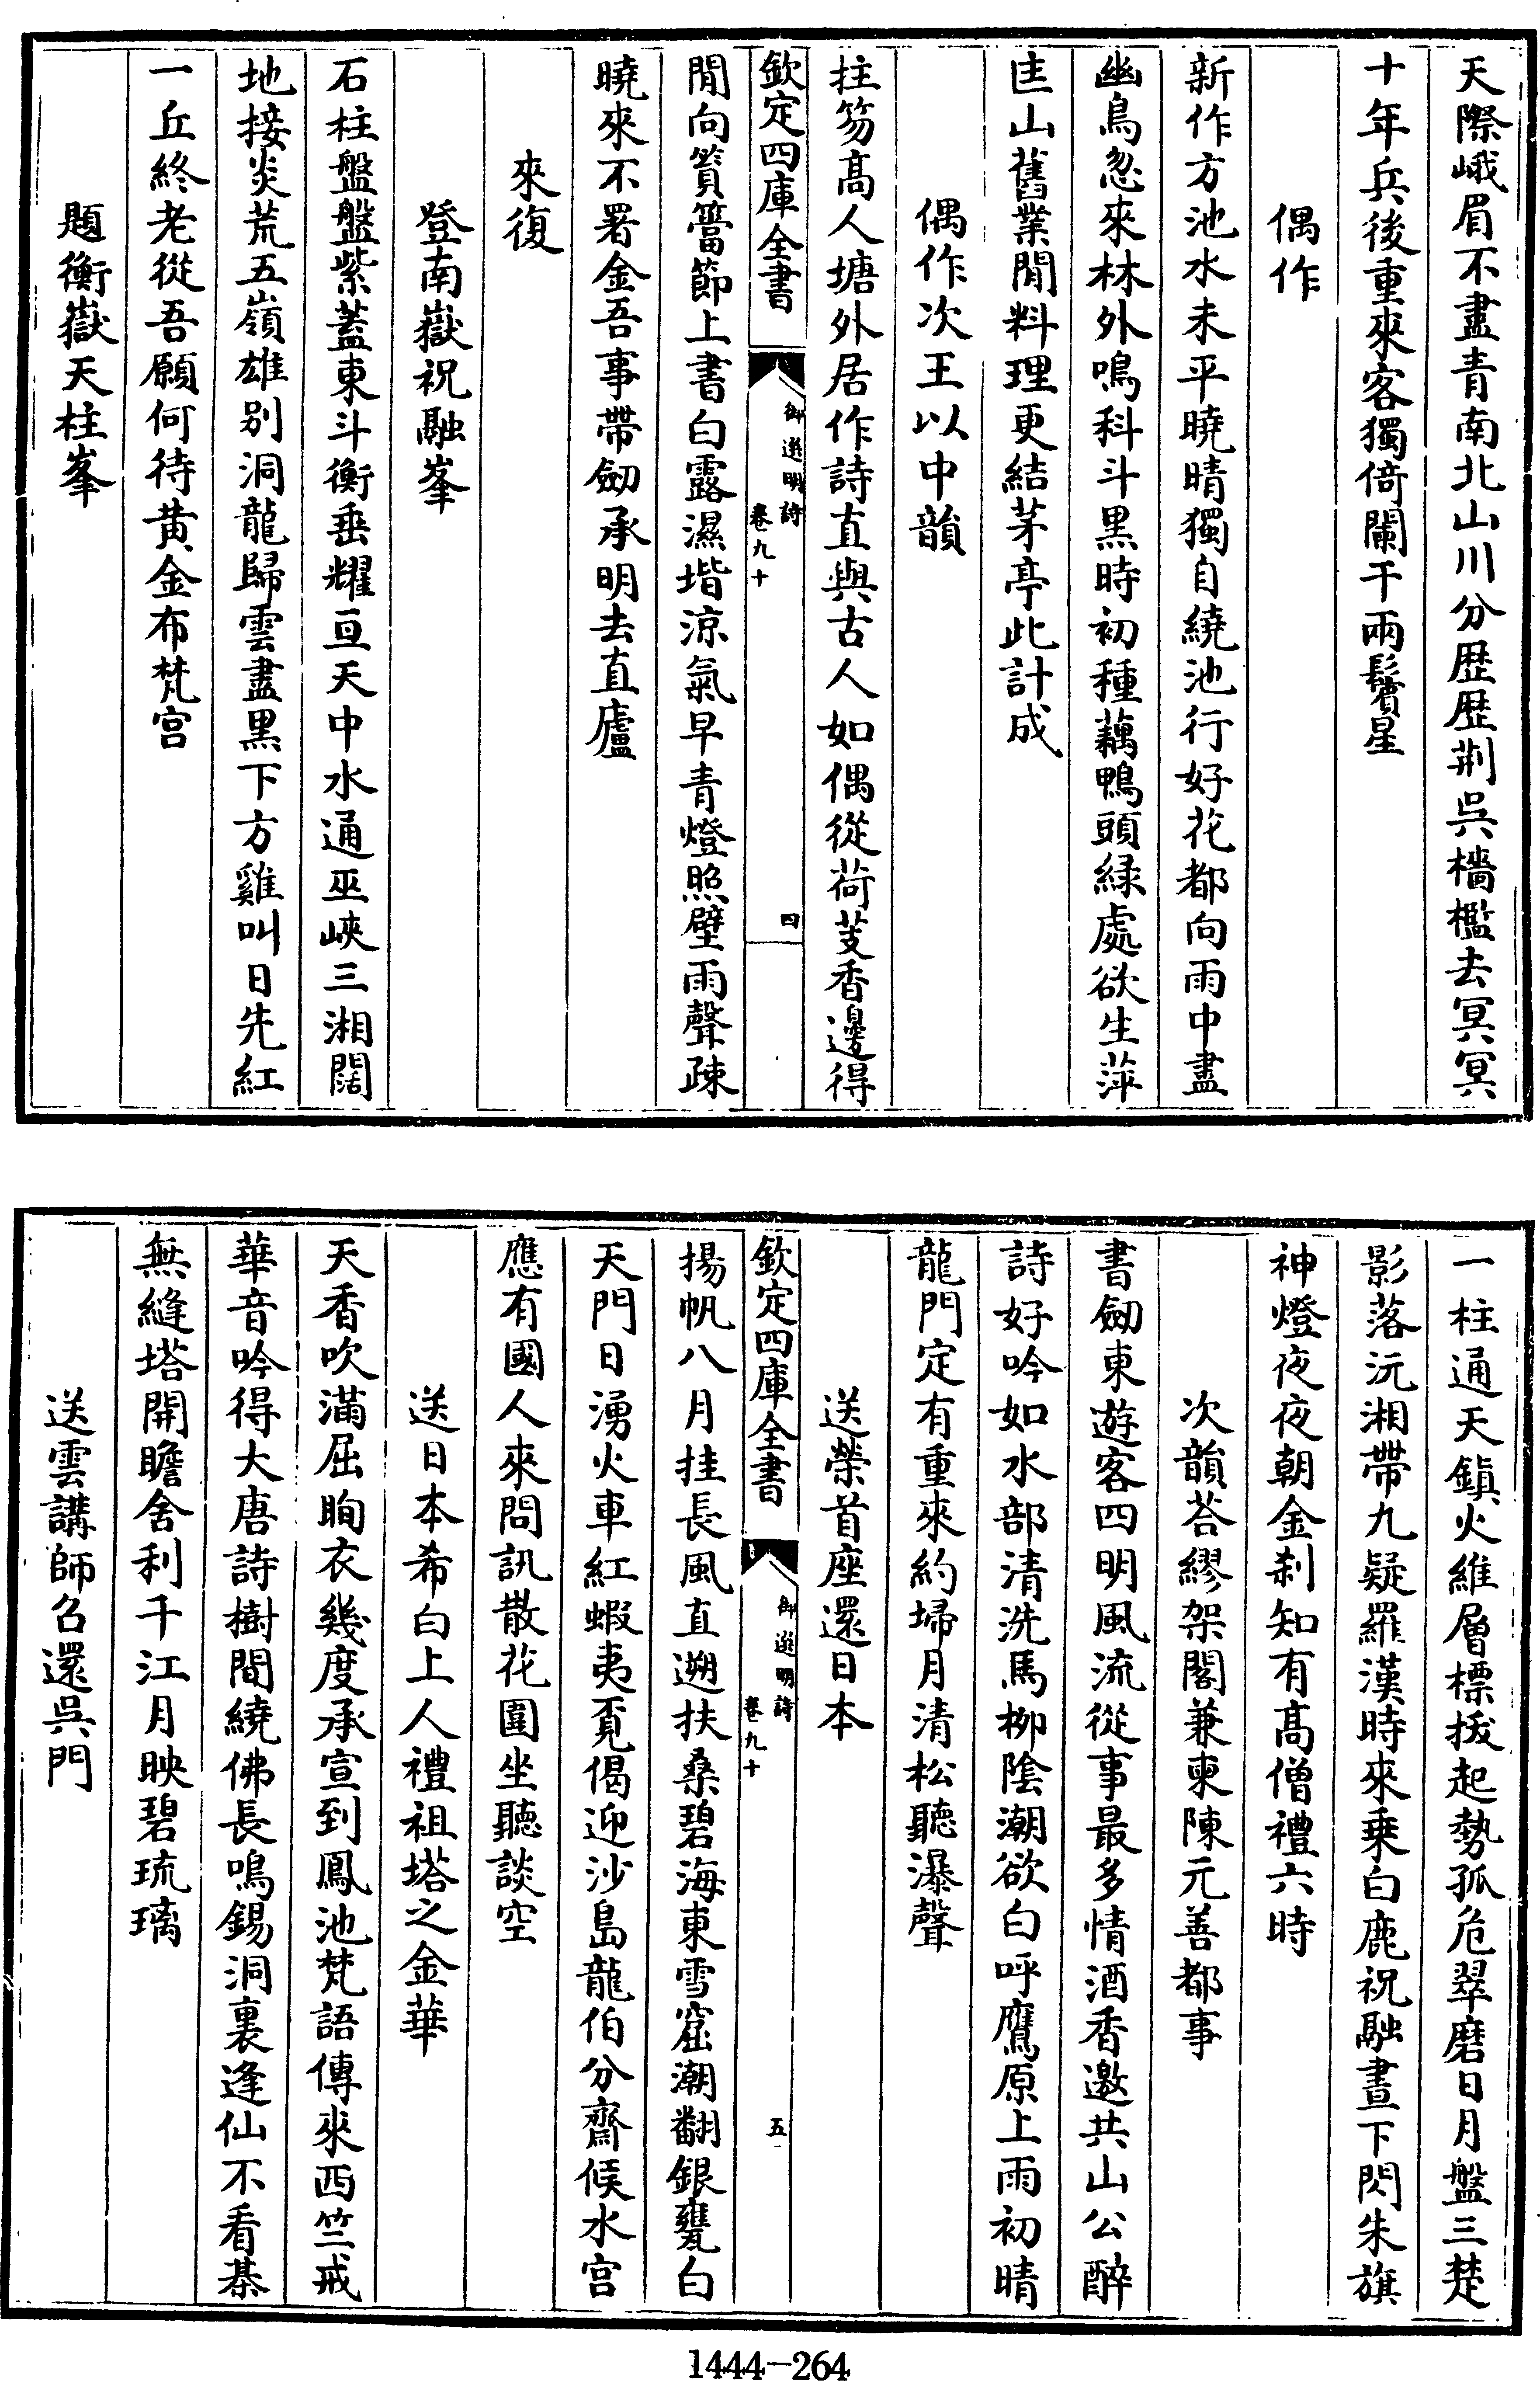 天際峨眉不盡青南北山川分歴歴荆吳檣檻去冥冥
十年兵後重來客獨倚闌干兩鬢星
偶作
新作方池水未平曉晴獨自繞池行好花都向雨中盡
幽鳥忽來林外鳴科斗黑時初種藕鴨頭緑處欲生萍
匡山舊業閒料理更結茅亭此計成
偶作次王以中韻
拄笏髙人塘外居作詩直與古人如偶從荷芰香邊得
欽定四庫全書
御選明詩
卷九十
四
閒向篔簹節上書白露濕堦涼氣早青燈照壁雨聲疎
曉來不署金吾事帶劒承明去直廬
來復
登南嶽祝融峯
石柱盤盤紫蓋東斗衡垂耀亘天中水通巫峽三湘闊
地接炎荒五嶺雄别洞龍歸雲盡黒下方雞叫日先紅
一丘終老從吾願何待黄金布梵宫
題衡嶽天柱峯
一柱通天鎮火維層標拔起勢孤危翠磨日月盤三楚
影落沅湘帶九疑羅漢時來乗白鹿祝融晝下閃朱旗
神燈夜夜朝金刹知有髙僧禮六時
次韻荅繆架閣兼柬陳元善都事
書劒東遊客四明風流從事最多情酒香邀共山公醉
詩好吟如水部清洗馬栁陰潮欲白呼鷹原上雨初晴
龍門定有重來約埽月清松聽瀑聲
送榮首座還日本
欽定四庫全書
御選明詩
卷九十
五
揚帆八月挂長風直遡扶桑碧海東雪窟潮翻銀甕白
天門日湧火車紅蝦夷覔偈迎沙島龍伯分齋候水宫
應有國人來問訊散花圍坐聽談空
送日本希白上人禮祖塔之金華
天香吹滿屈眴衣幾度承宣到鳳池梵語傳來西竺戒
華音吟得大唐詩樹間繞佛長鳴錫洞裏逢仙不看棊
無縫塔開瞻舍利千江月映碧琉璃
送雲講師召還吳門
1444-264